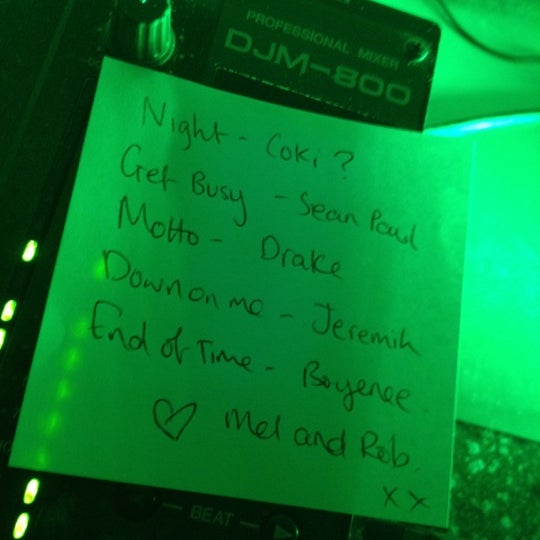 PROFESSIONAL MIXER
DJM-800
Night - Coki?
Get Busy - Sean Paul
Motto - Drake
Down on me - Jeremih
End of Time - Boyenee.
♡ Mel and Rob.
x x
BEAT